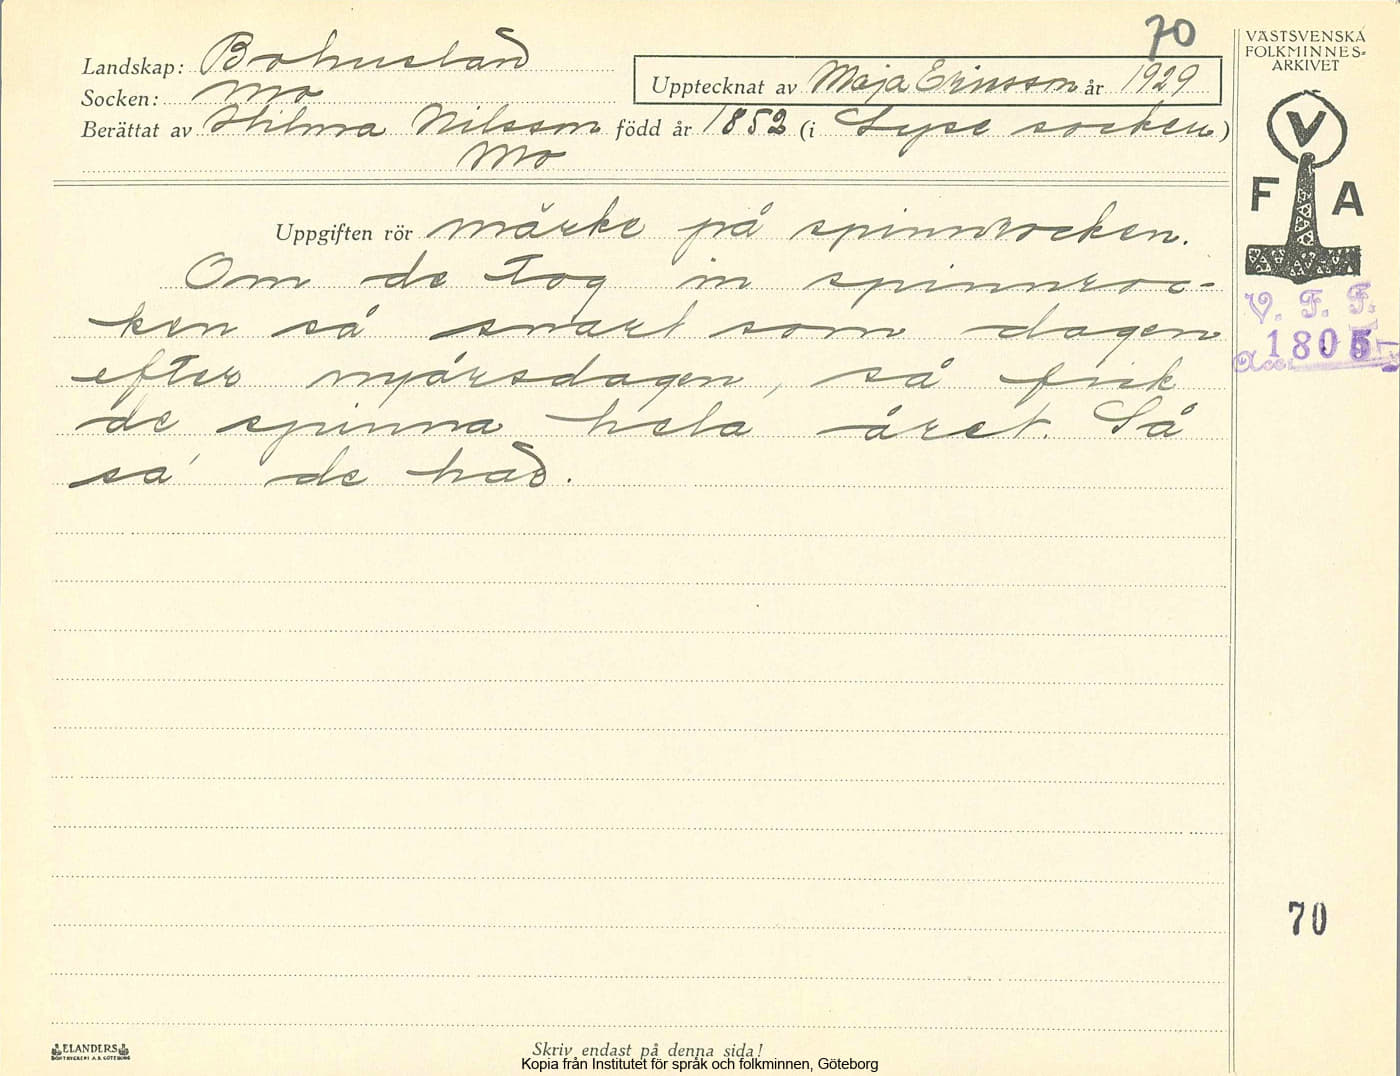 70
VÄSTSVENSKA
FOLKMINNES-
ARKIVET
Landskap: Bohuslän
Upptecknat av Maja Ericsson år 1929
Socken: Mo
Berättat av Hilma Nilsson född år 1852 (i Lyse socken)
Mo
V
F A
Uppgiften rör märke på spinnrocken.
Om de tog in spinnroc-
ken så snart som dagen
efter nyårsdagen, så fick
de spinna hela året. Så
sa' de had.
V. F. F.
1805
Acc
70
ELANDERS
BOKTRYCKERI A.B. GÖTEBORG
Skriv endast på denna sida!
Kopia från Institutet för språk och folkminnen, Göteborg